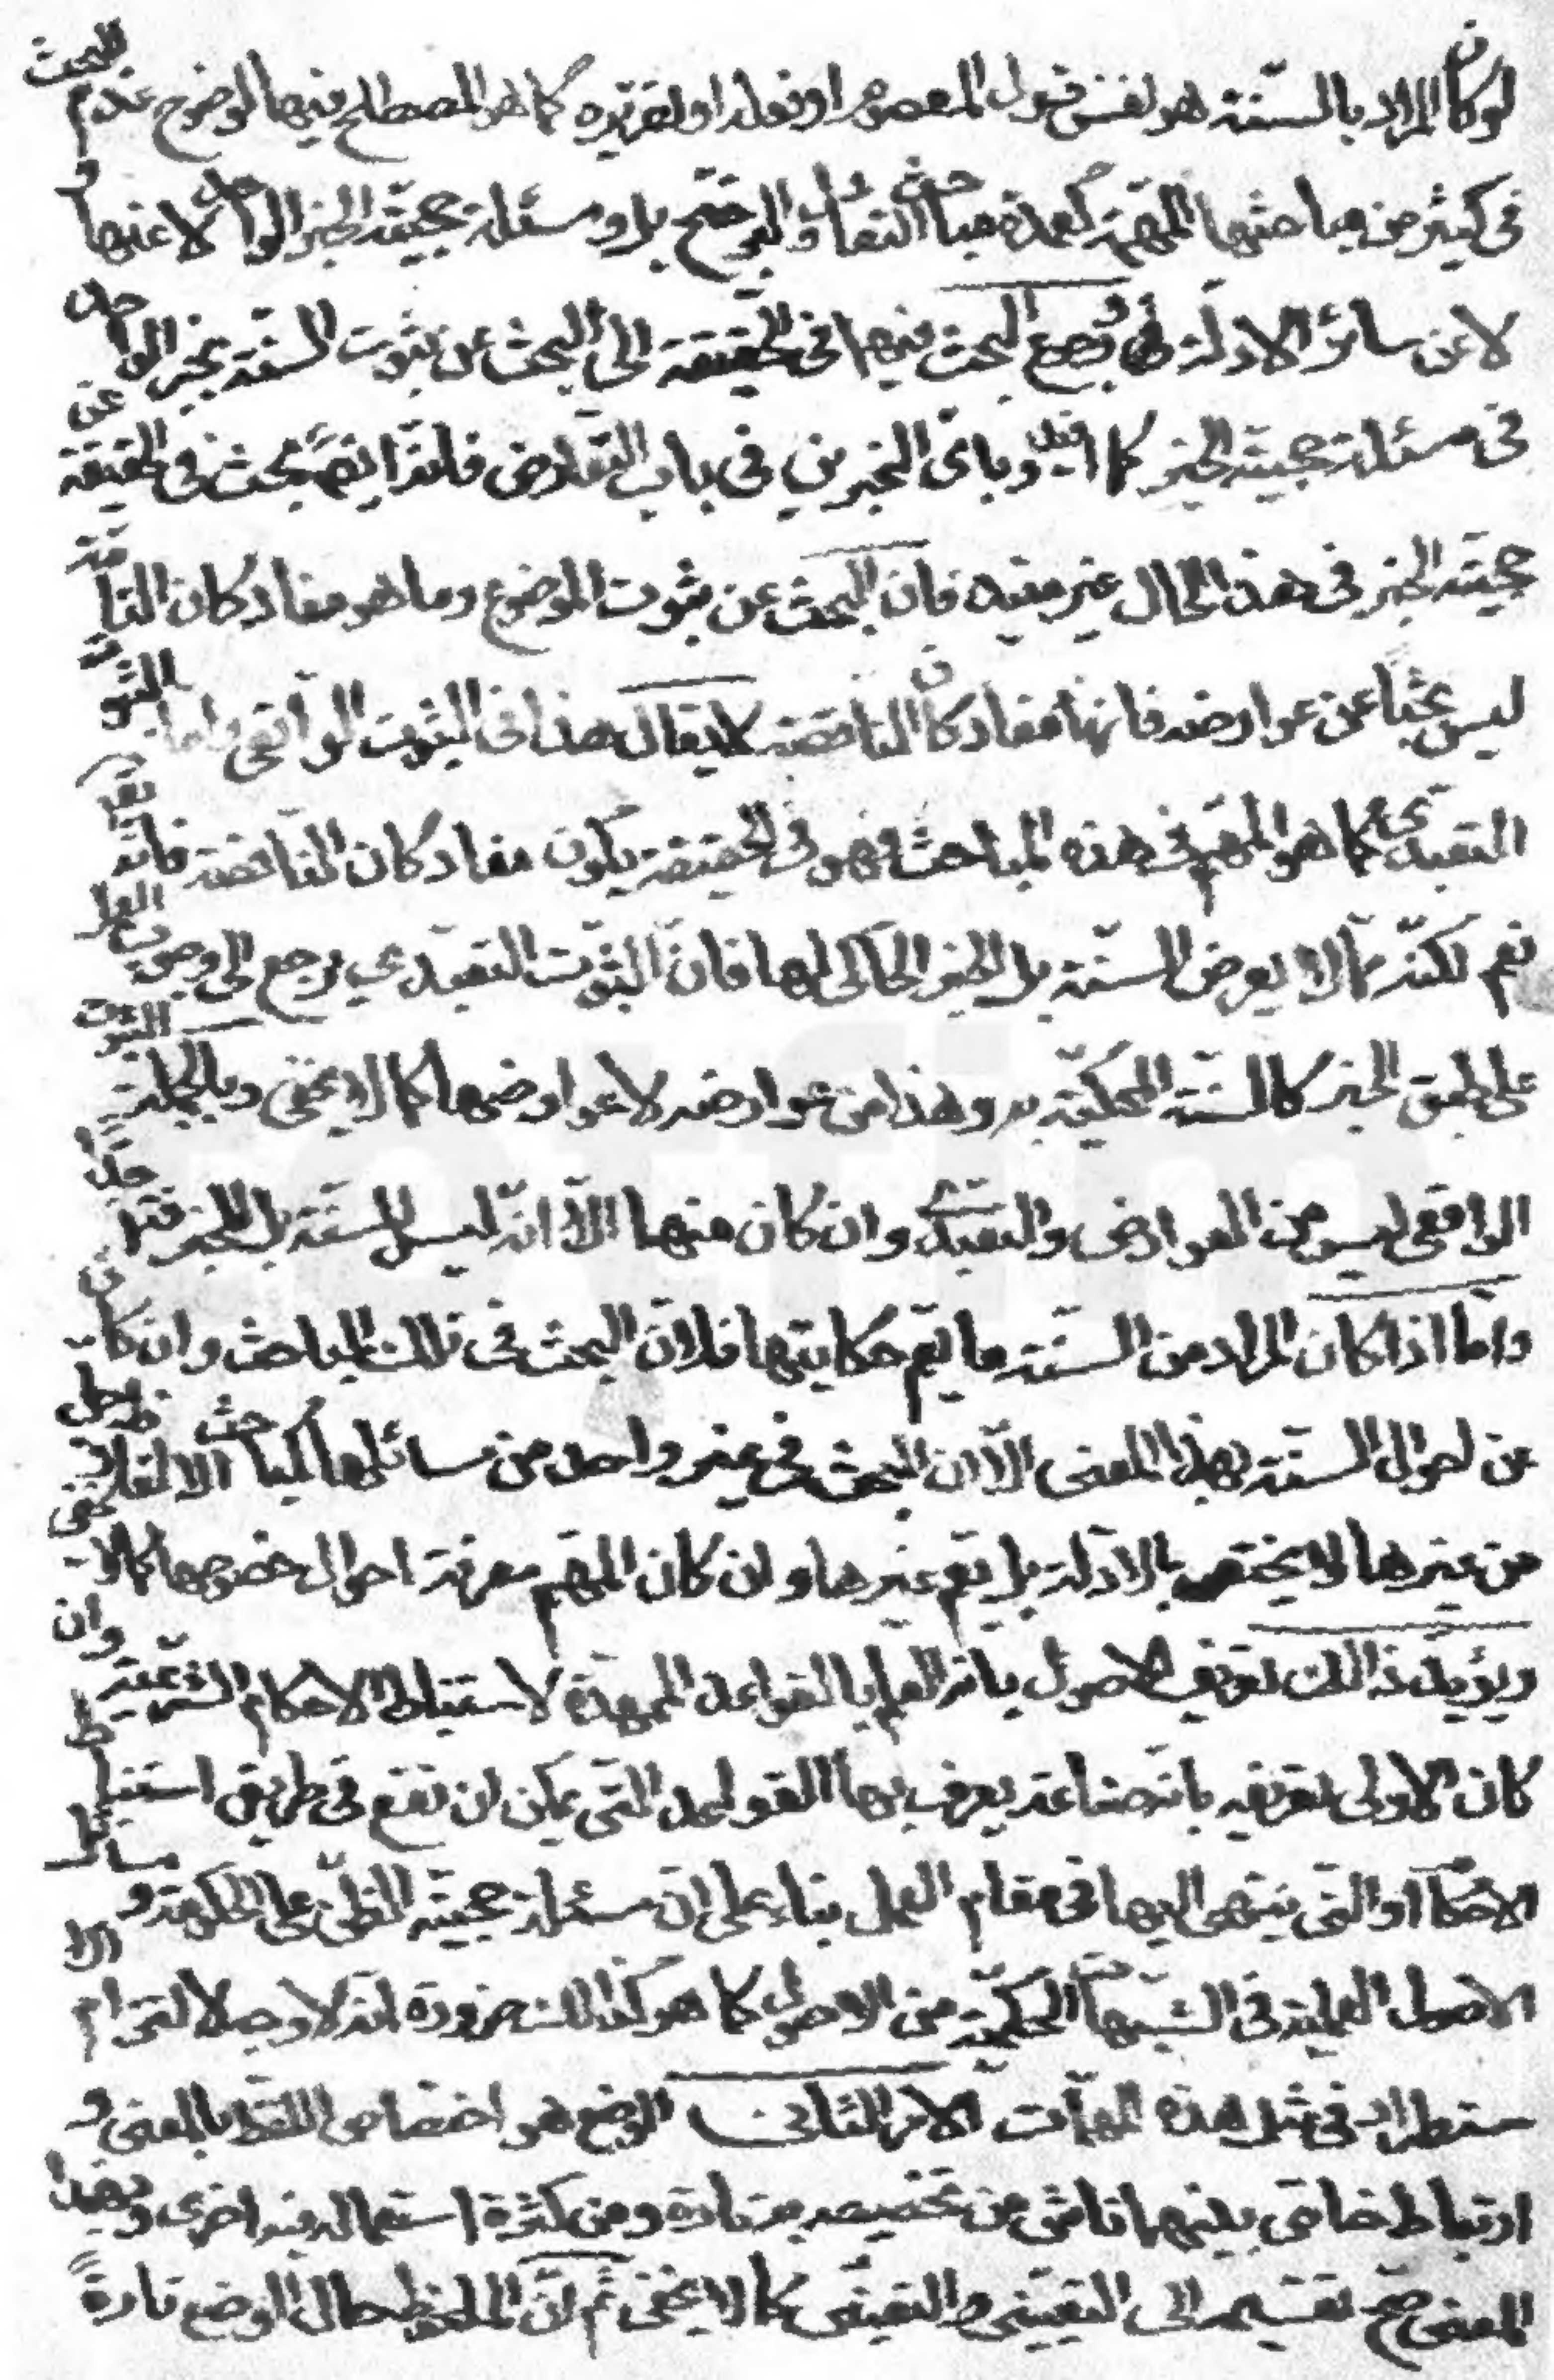 لو كان المراد بالسنة هو نفس قول المعصوم او فعله او تقريره كما هو المصطلح فيها لوضوح عدم البحث
فى كثير من مباحثها المهمة كعمدة مباحث التعادل والترجيح بل ومسئلة حجية الخبر الواحد لا عنها و
لا عن سائر الادلة رجوع البحث فيهما فى الحقيقة الى البحث عن ثبوت السنة بخبر الواحد
فى مسئلة حجية الخبر كما افيد وباى الخبرين فى باب التعارض فانه ايضا بحث فى الحقيقة عن
حجية الخبر فى هذا الحال غير مفيد فان البحث عن ثبوت الموضوع وما هو مفاد كان التامة
ليس بحثا عن عوارضه فانها مفاد كان الناقصة لا يقال هذا فى الثبوت الواقعى واما الثبوت
التعبدى كما هو المهم فى هذه المباحث فهو فى الحقيقة يكون مفاد كان الناقصة فانه يقال
نعم لكنه مما لا يعرض السنة بل الخبر الحاكى لها فان الثبوت التعبدى يرجع الى وجوب العمل
على طبق الخبر كالسنة المحكية به وهذا من عوارضه لا عوارضها كما لا يخفى وبالجملة الثبوت
الواقعى ليس من العوارض والتعبدى وان كان منها الا انه ليس للسنة بل للخبر فتأمل جدا
واما اذا كان المراد من السنة ما يعم حكايتها فلان البحث فى تلك المباحث وان كان
عن احوال السنة بهذا المعنى الا ان البحث فى غير واحد من مسائلها كمباحث الالفاظ وجملة
من غيرها لا يختص بالادلة بل يعم غيرها وان كان المهم معرفة احوال خصوصها كما لا يخفى
ويؤيد ذلك تعريف الاصول بانه العلم بالقواعد الممهدة لاستنباط الاحكام الشرعية وان
كان الاولى تعريفه بانه صناعة يعرف بها القواعد التى يمكن ان تقع فى طريق استنباط
الاحكام او التى ينتهى اليها فى مقام العمل بناء على ان مسئلة حجية الظن على الحكومة و مسائل
الاصول العملية فى الشبهات الحكمية من الاصول كما هو كذلك ضرورة انه لا وجه لالتزام الا
ستطراد فى مثل هذه المهمات الامر الثانى الوضع هو اختصاص اللفظ بالمعنى و
ارتباط خاص بينهما ناش من تخصيصه به تارة ومن كثرة استعماله فيه اخرى وبهذا
المعنى صح تقسيمه الى التعيينى والتعينى كما لا يخفى ثم ان الملحوظ حال الوضع تارة